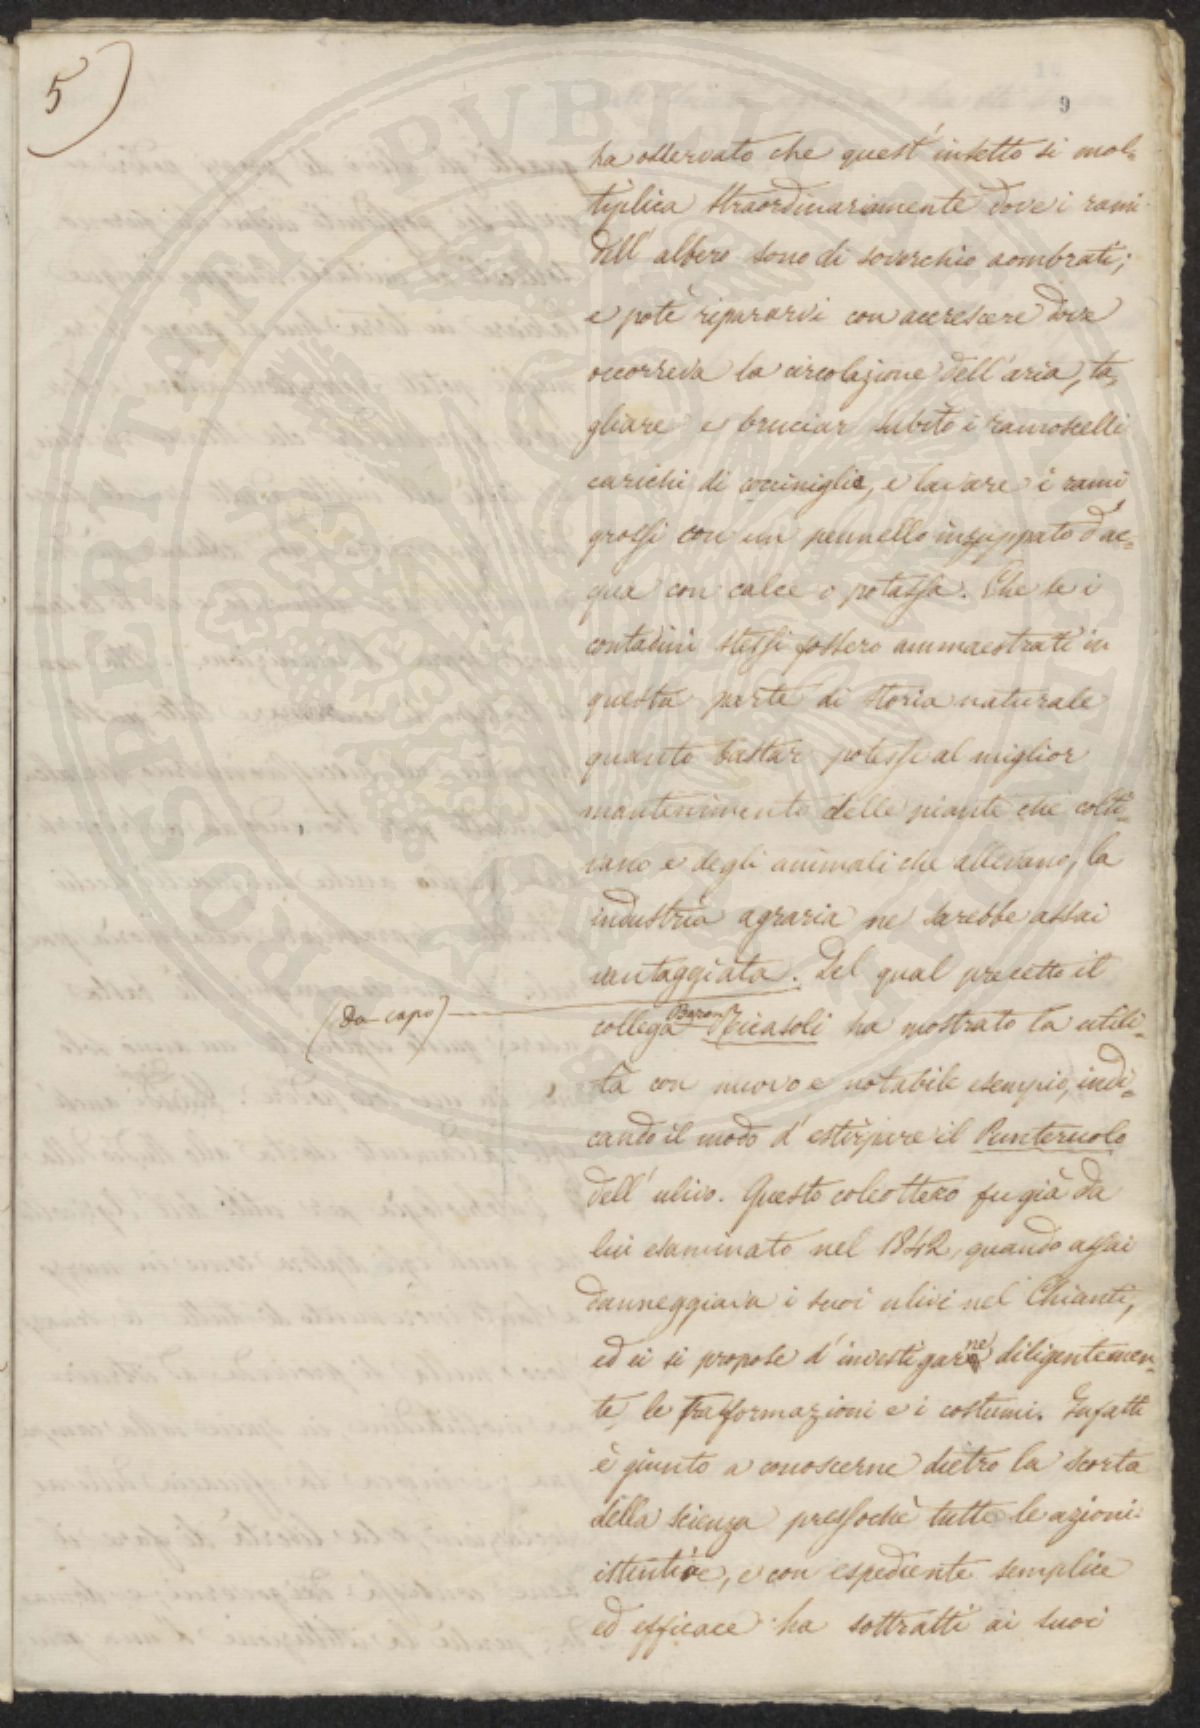 5)
9
ha osservato che quest'insetto si mol-
tiplica straordinariamente dove i rami
dell'albero sono di soverchio aombrati;
e potè ripararvi con accrescere dove
occorreva la circolazione dell'aria, ta-
gliare e bruciar subito i ramoscelli
carichi di cocciniglie, e lavare i rami
grossi con un pennello inzuppato d'ac-
qua con calce o potassa. Che se i
contadini stessi fossero ammaestrati in
questa parte di storia naturale
quanto bastar potesse al miglior
mantenimento delle piante che colti-
vano e degli animali che allevano, la
industria agraria ne sarebbe assai
vantaggiata. Del qual precetto il
(Da capo)
collega Baron Ricasoli ha mostrato la utili-
tà con nuovo e notabile esempio, indi-
cando il modo d'estirpare il Punteruolo
dell'ulivo. Questo coleottero fu già da
lui esaminato nel 1842, quando assai
danneggiava i suoi ulivi nel Chianti,
ed ei si propose d'investigarne diligentemen-
te le trasformazioni e i costumi. Infatti
è giunto a conoscerne dietro la scorta
della scienza pressochè tutte le azioni
istintive, e con espediente semplice
ed efficace ha sottratti ai suoi
PROSPERITATI PVBLICAE AVGENDAE